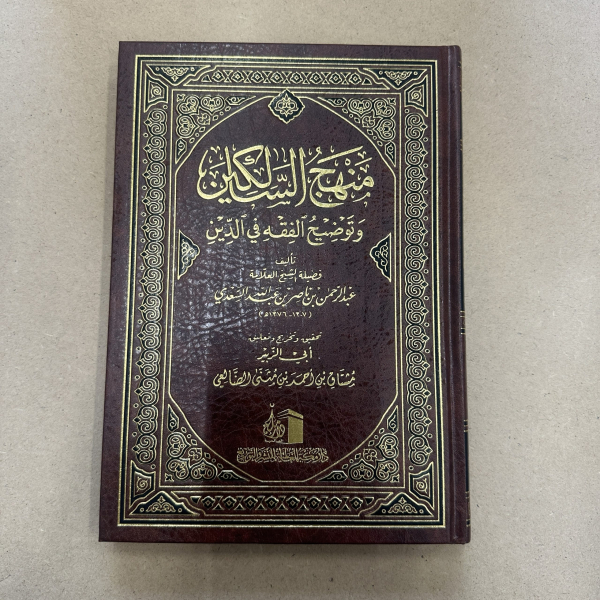 مَنْهَجُ السَّالِكِيْنَ
وَتَوْضِيْحُ الفِقْهِ فِي الدِّيْنِ
تأليف
فضيلة الشيخ العلامة
عبد الرحمن بن ناصر بن عبد الله السعدي
(١٣٠٧ - ١٣٧٦ هـ)
تحقيق وتخريج وتعليق
أبي الزبير
مشتاق بن أحمد بن مثنى الضالعي